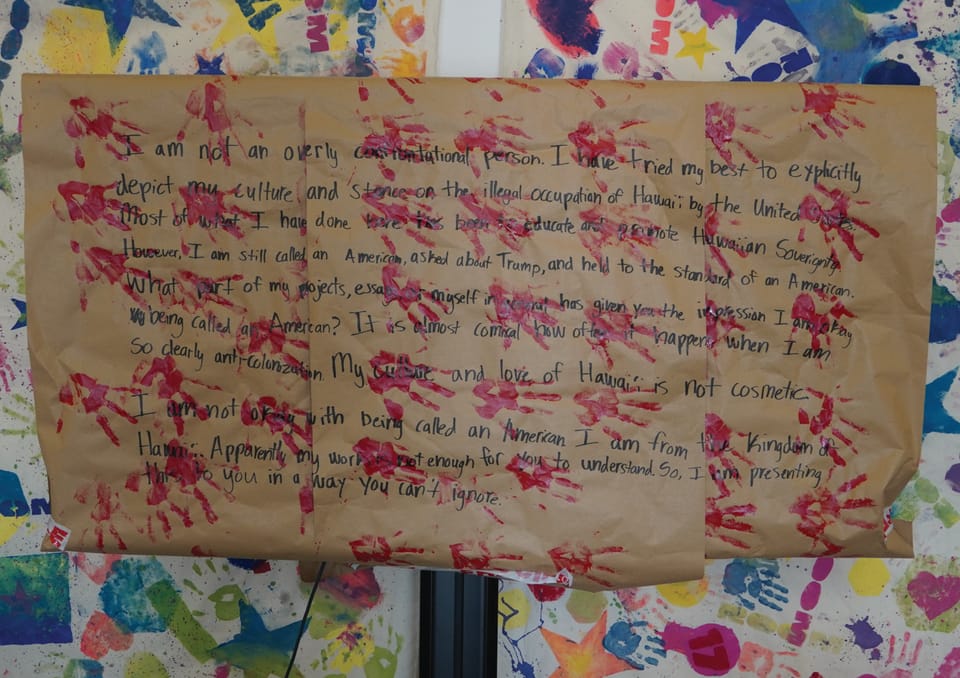 I am not an overly confrontational person. I have tried my best to explicitly
depict my culture and stance on the illegal occupation of Hawai'i by the United States.
Most of what I have done here has been to educate and promote Hawaiian Sovereignty.
However, I am still called an American, asked about Trump, and held to the standard of an American.
What part of my projects, essays or myself in general has given you the impression I am okay
w/ being called an American? It is almost comical how often it happens when I am
so clearly anti-colonization. My culture and love of Hawai'i is not cosmetic.
I am not okay with being called an American I am from the Kingdom of
Hawai'i. Apparently my work is not enough for you to understand. So, I am presenting
this to you in a way you can't ignore.
PM
17